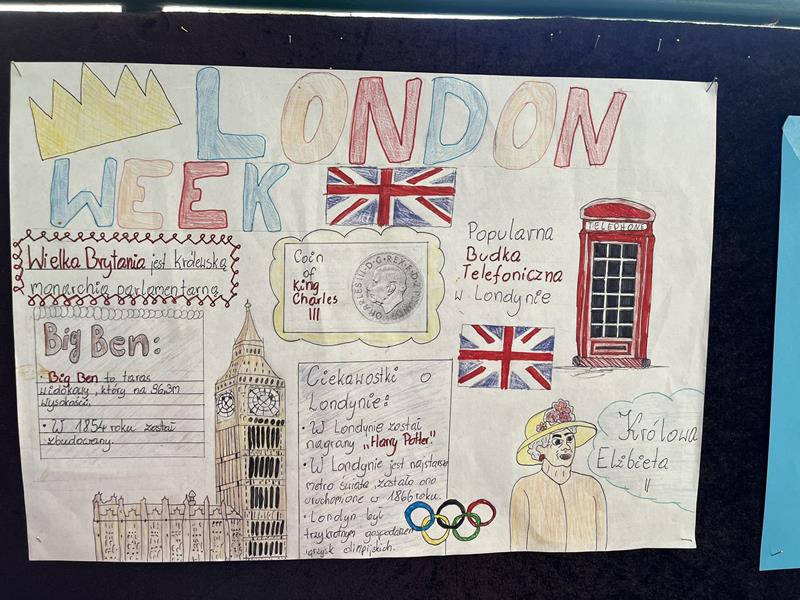 LONDON
WEEK
Wielka Brytania jest Królewską
monarchią parlamentarną
Coin
of
King
Charles
III
CHARLES III·D·G·REX·F·D·
Popularna
Budka
Telefoniczna
w Londynie
TELEPHONE
Big Ben:
· Big Ben to taras
widokowy, który na 96,3m
wysokości.
· W 1854 roku został
zbudowany.
Ciekawostki o
Londynie:
· W Londynie został
nagrany „Harry Potter."
· W Londynie jest najstarsze
metro świata, zostało ono
uruchomione w 1866 roku.
· Londyn był
trzykrotnym gospodarzem
igrzysk olimpijskich.
Królowa
Elżbieta
II